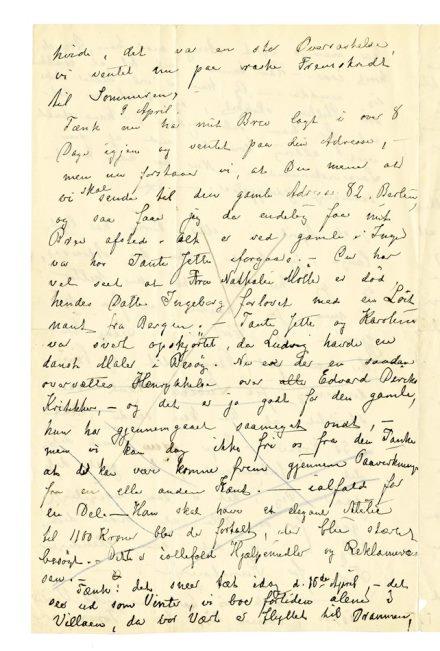 hvide, det var en stor Overraskelse,
vi ventet nu paa raske Fremskridt
til Sommeren, –
9 April.
Tænk nu har mit Brev lagt i over 8
Dage igjen og ventet paa din Adresse, –
men nu forstaar vi, at Du mener at
vi skal sende til den gamle Adresse 82, Berlin,
og saa faar jeg da endelig faa mit
Brev afsted. Alt er ved gamle. Inge
var hos Tante Jette forgaars. – Du har
vel seet at Fru Nathalie Moltke er død
hendes Datter Ingeborg forlovet med en Løit
nant fra Bergen; – Tante Jette og Karoline
var svært opskjørtet, da Ludvig havde en
dansk Maler i Besøg. Nu er der en saadan
overvættes Henrykkelse over Edvard Dercks
Kritikker, – og det er jo godt for den gamle,
hun har gjennemgaaet saameget ondt, –
men vi kan dog ikke fri os fra den Tanke
at det kan være komme frem gjennem Paavirkninger
fra en eller anden Kant. – ialfald for
en Del. – Han skal have et elegant Atelier
til 1100 Kroner blev der fortalt, der blev stærkt
besøgt. – Dette er iallefald Hjælpemidler og Reklamevæ
sen. –
Tænk! det sneer tæt idag d. 10de April, – det
ser ud som Vinter, vi bor fortiden alene i
Villaen, da vor Vært er flyttet til Drammen,